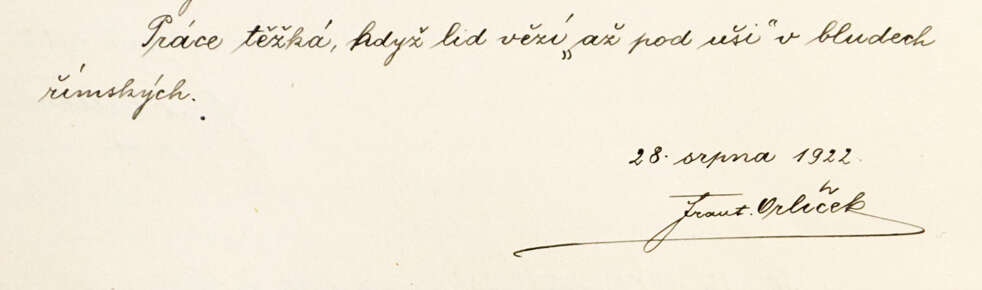 Práce těžká, když lid vězí „až pod uši“ v bludech
římských.
28. srpna 1922.
Frant. Orlíček